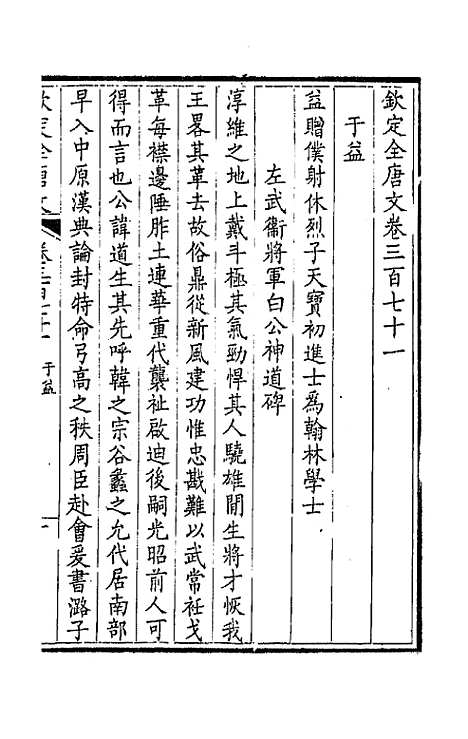 欽定全唐文卷三百七十一
于益
益贈僕射休烈子天寶初進士爲翰林學士
左武衞將軍白公神道碑
淳維之地上戴斗極其氣勁悍其人驍雄閒生將才恢我
王畧其革去故俗鼎從新風建功惟忠戡難以武常衽戈
革每襟邊陲胙土連華重代襲祉啟迪後嗣光昭前人可
得而言也公諱道生其先呼韓之宗谷蠡之允代居南部
早入中原漢典論封特命弓高之秩周臣赴會爰書潞子
欽定全唐文 卷三百七十一 于益 一